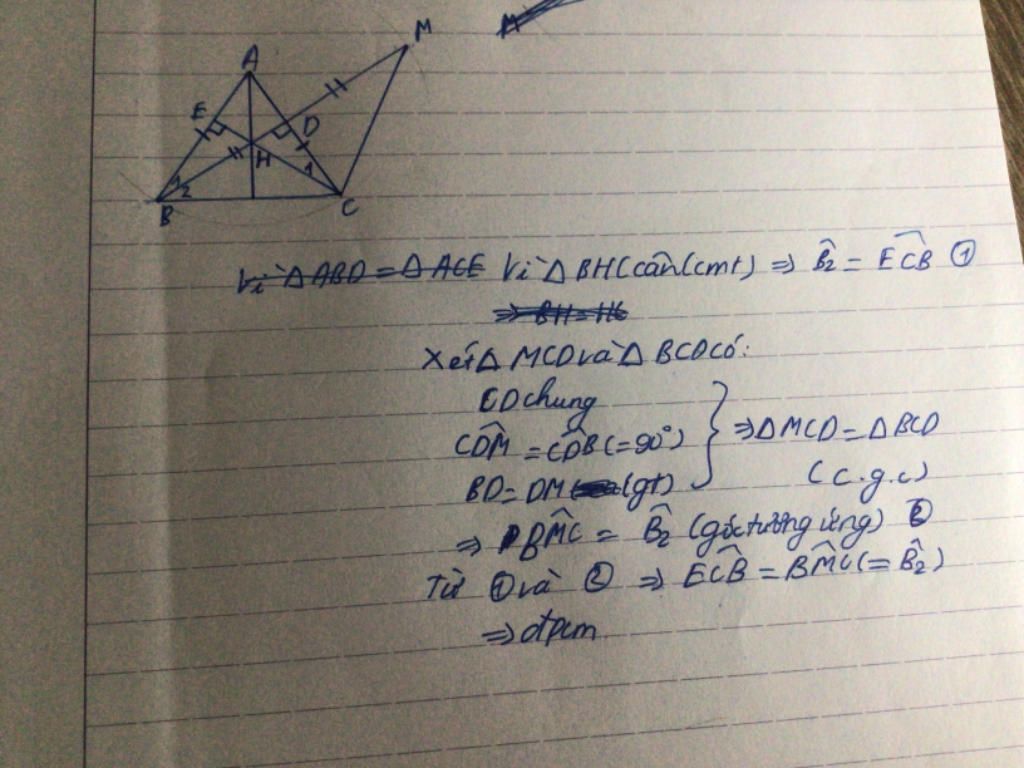 M
A
M
E
D
H
1
1
2
B
C
Vì △ABD = △ACE Vì △BHC cân (cmt) ⇒ B̂₂ = EĈB ①
⇒ BH = HC
Xét △ MCD và △ BCD có:
CD chung
CD̂M = CD̂B (= 90°)
⇒ △MCD = △BCD
BD = DM (gt)
(c.g.c)
⇒ BM̂C = B̂₂ (góc tương ứng) ②
Từ ① và ② ⇒ EĈB = BM̂C (= B̂₂)
⇒ đpcm